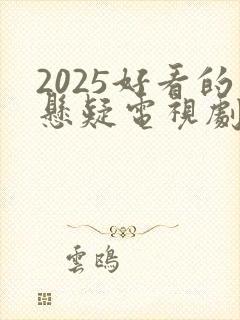 2025好看的
懸疑電視劇
雲鴟